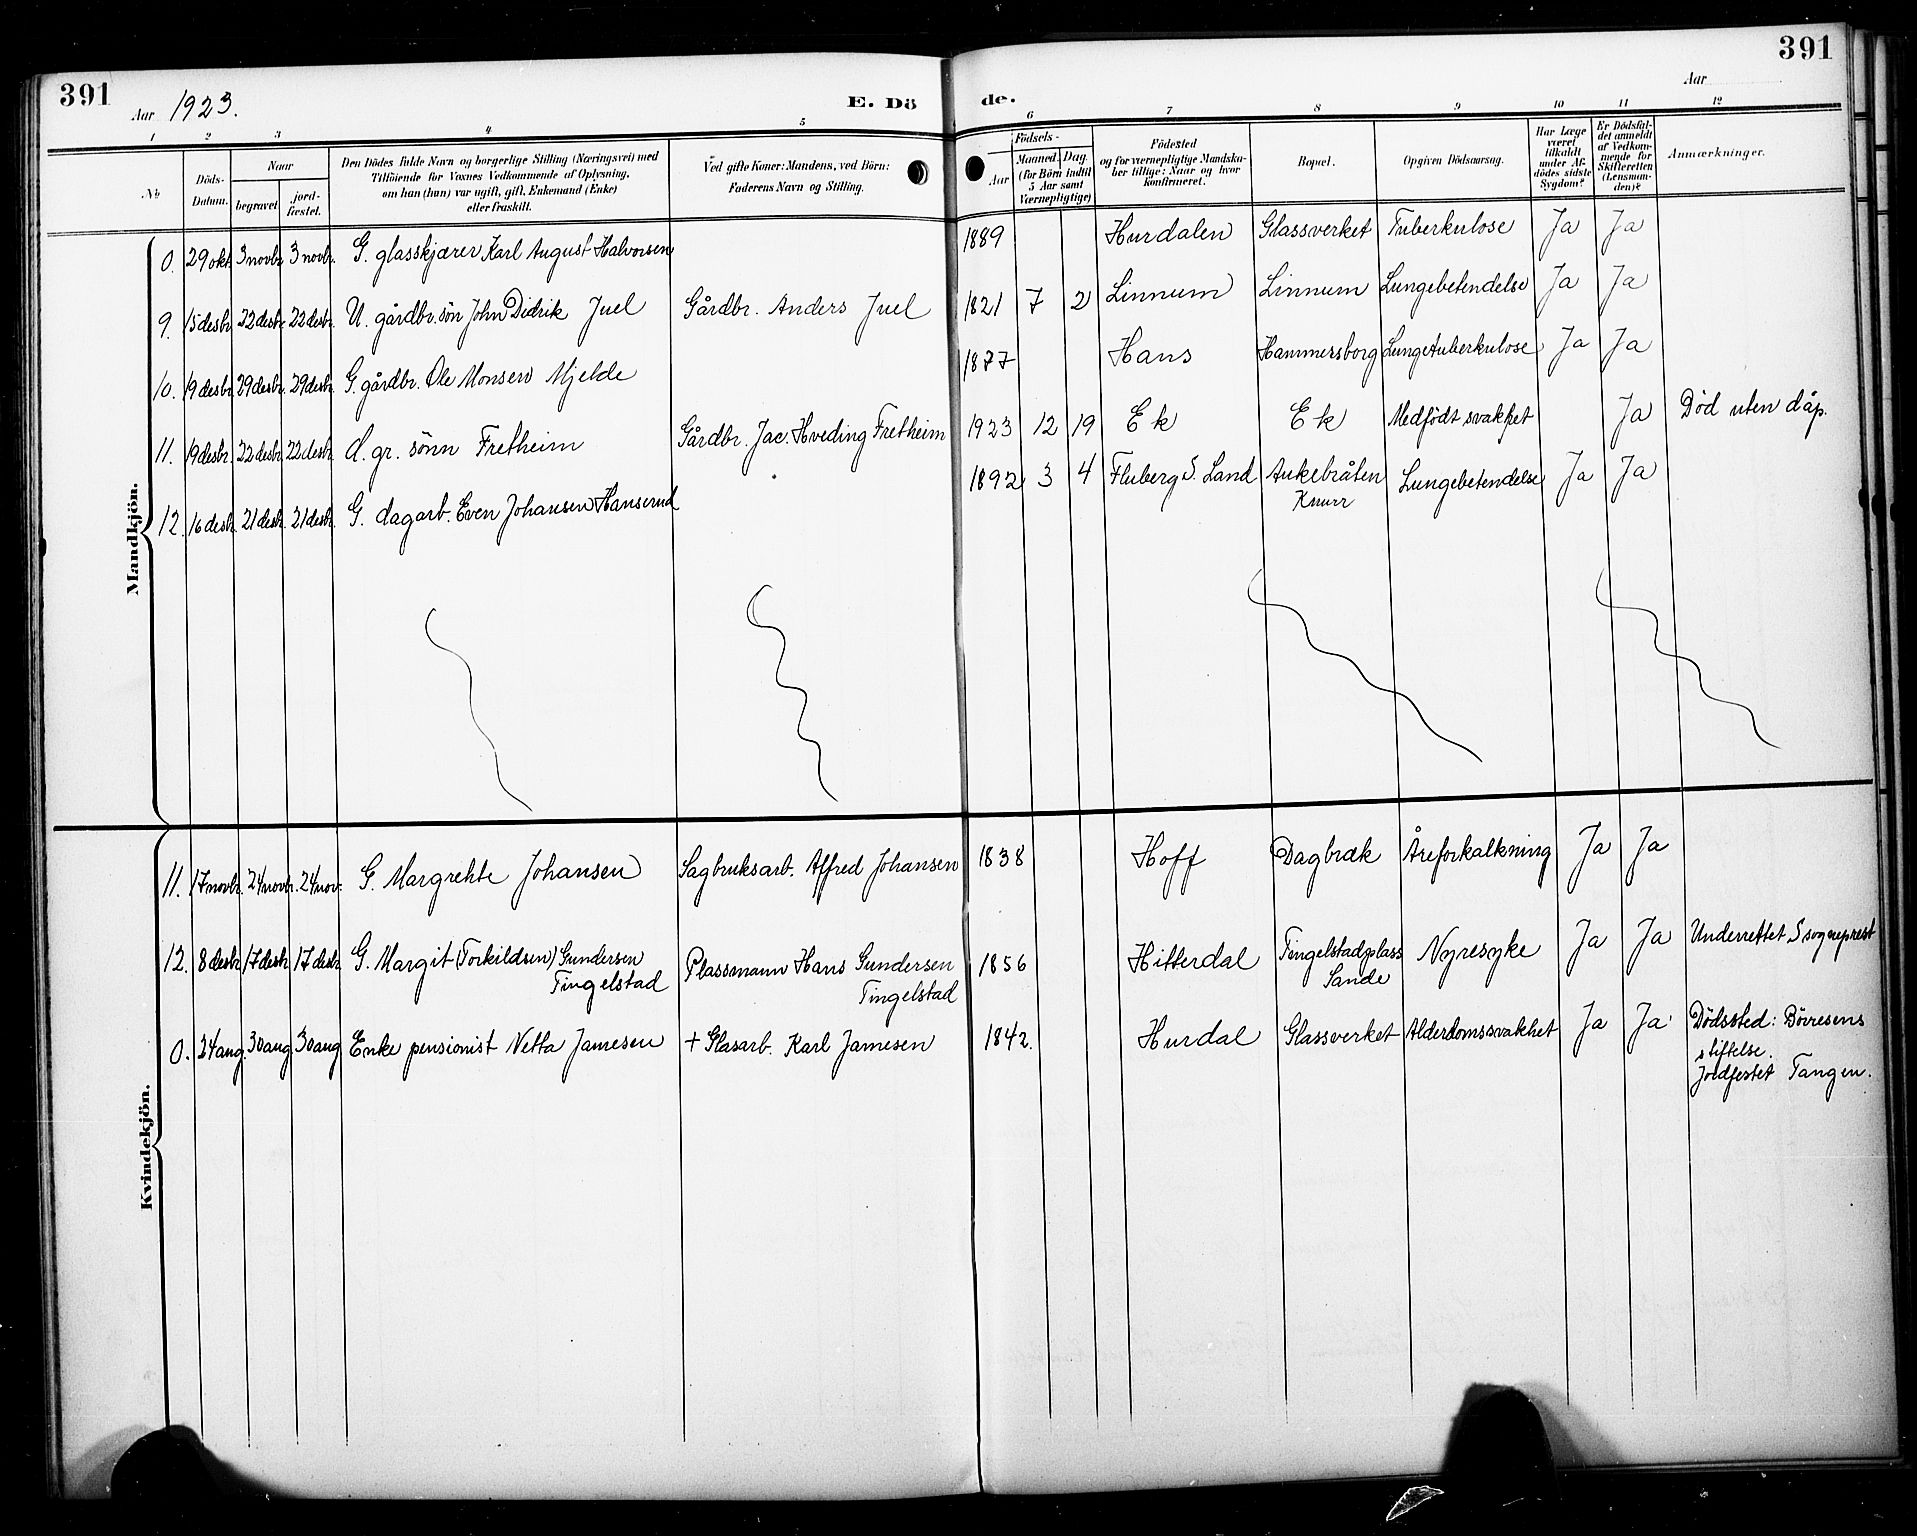 391
Aar 1923.
E. Dö
de.
Aar
391
1 2 3 4 5 6 7 8 9 10 11 12
No
Döds-Datum.
Naar
begravet
jord-fæstet.
Den Dödes fulde Navn og borgerlige Stilling (Næringsvei) med
Tilföiende for Voxnes Vedkommende af Oplysning,
om han (hun) var ugift, gift, Enkemand (Enke)
eller fraskilt.
Ved gifte Koner: Mandens, ved Börn:
Faderens Navn og Stilling.
Födsels-
Aar
Maaned. Dag.
(for Börn indtil
5 Aar samt
Værnepligtige)
Födested
og for værnepligtige Mandska-
ber tillige: Naar og hvor
konfirmeret.
Bopæl.
Opgiven Dödsaarsag.
Har Læge
været
tilkaldt
under Af-
dödes sidste
Sygdom?
Er Dödsfal-
det anmeldt
af Vedkom-
mende for
Skifteretten
(Lensman-
den)?
Anmærkninger.
Mandkjön.
0. 29 okt. 3 novbr. 3 novbr. G. glasskjærer Karl August Halvorsen 1889 Hurdalen Glassverket Tuberkulose Ja Ja
9. 15 desbr. 22 desbr. 22 desbr. U. gårdbr. sön John Didrik Juel Gårdbr. Anders Juel 1821 7 2 Linnum Linnum Lungebetendelse Ja Ja
10. 19 desbr. 29 desbr. 29 desbr. G. gårdbr. Ole Monsen Mjelde 1877 Hans Hammersborg Lungetuberkulose Ja Ja
11. 19 desbr. 22 desbr. 22 desbr. d. gr. sönn Fretheim Gårdbr. Jac. Hveding Fretheim 1923 12 19 Ek Ek Medfödt svakhet Ja Död uten dåp.
12. 16 desbr. 21 desbr. 21 desbr. G. dagarb. Even Johansen Hanserud 1892 3 4 Fluberg S. Land Aukebråten Lungebetendelse Ja Ja
Knurr
Kvindekjön.
11. 17 novbr. 24 novbr. 24 nov. G. Margrehte Johansen Sagbruksarb. Alfred Johansen 1838 Hoff Dagbræk Åreforkalkning Ja Ja
12. 8 desbr. 17 desbr. 17 desbr. G. Margit (Torkildsen) Gundersen Plassmann Hans Gundersen 1856 Hitterdal Tingelstadplass Nyresyke Ja Ja Underrettet S sogneprest
Tingelstad Tingelstad Sande
0. 24 aug. 30 aug 30 aug Enke pensionist Netta Jamesen + Glasarb. Karl Jamesen 1842. Hurdal Glassverket Alderdomssvakhet Ja Ja Dödssted: Börresens
stiftelse.
Jordfestet Tangen.